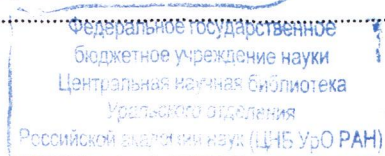 Федеральное государственное
бюджетное учреждение науки
Центральная научная библиотека
Уральского отделения
Российской академии наук (ЦНБ УрО РАН)